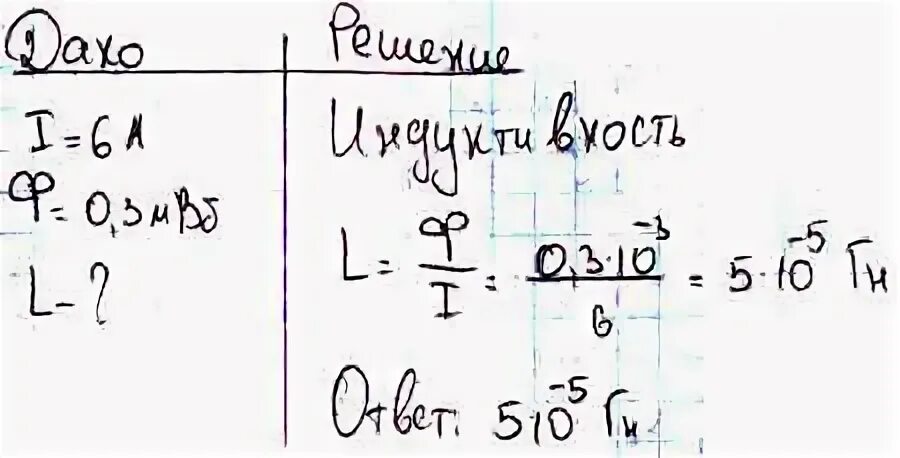 Дано
I = 6 А
Ф = 0,3 мВб
L - ?
Решение
Индуктивность
L = Ф/I = 0,3·10⁻³/6 = 5·10⁻⁵ Гн
Ответ: 5·10⁻⁵ Гн